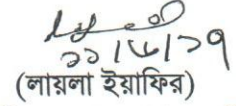 ১১/৬/১৭
(লায়লা ইয়াফির)